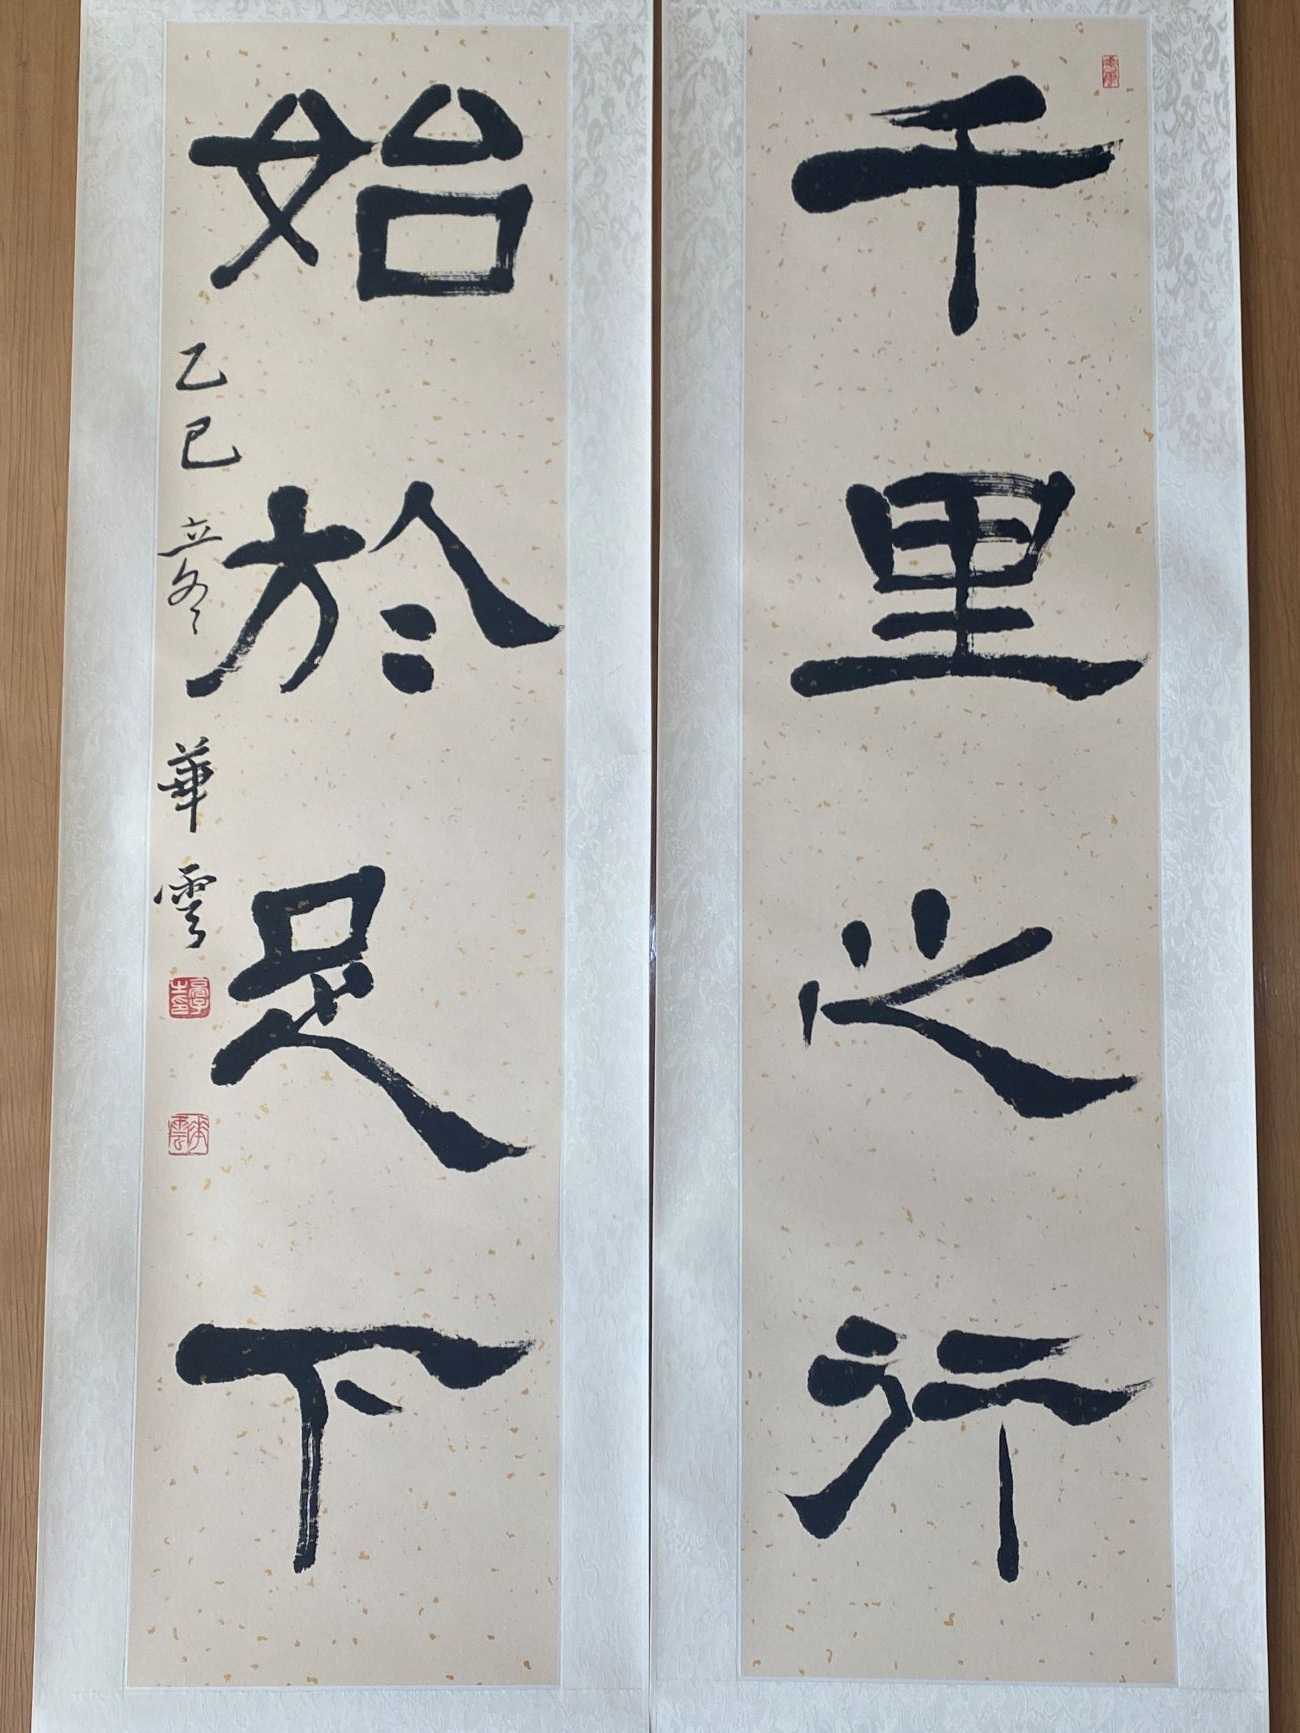 千里之行
始於足下
乙巳立冬 華雲